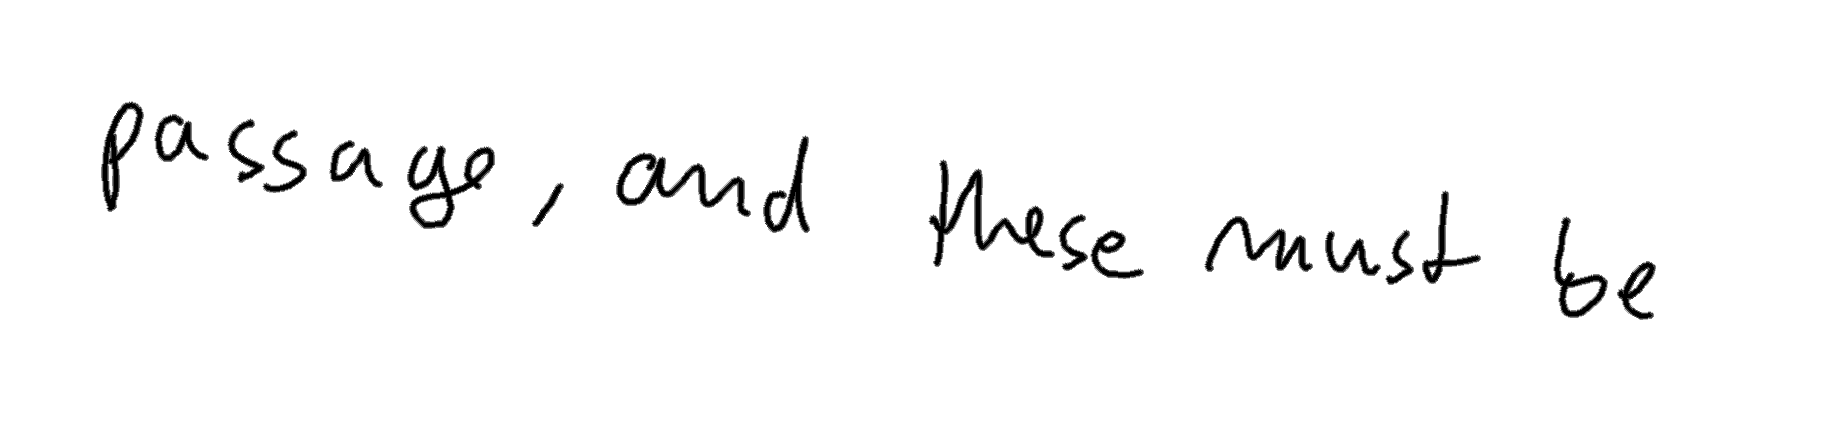 passage, and these must be